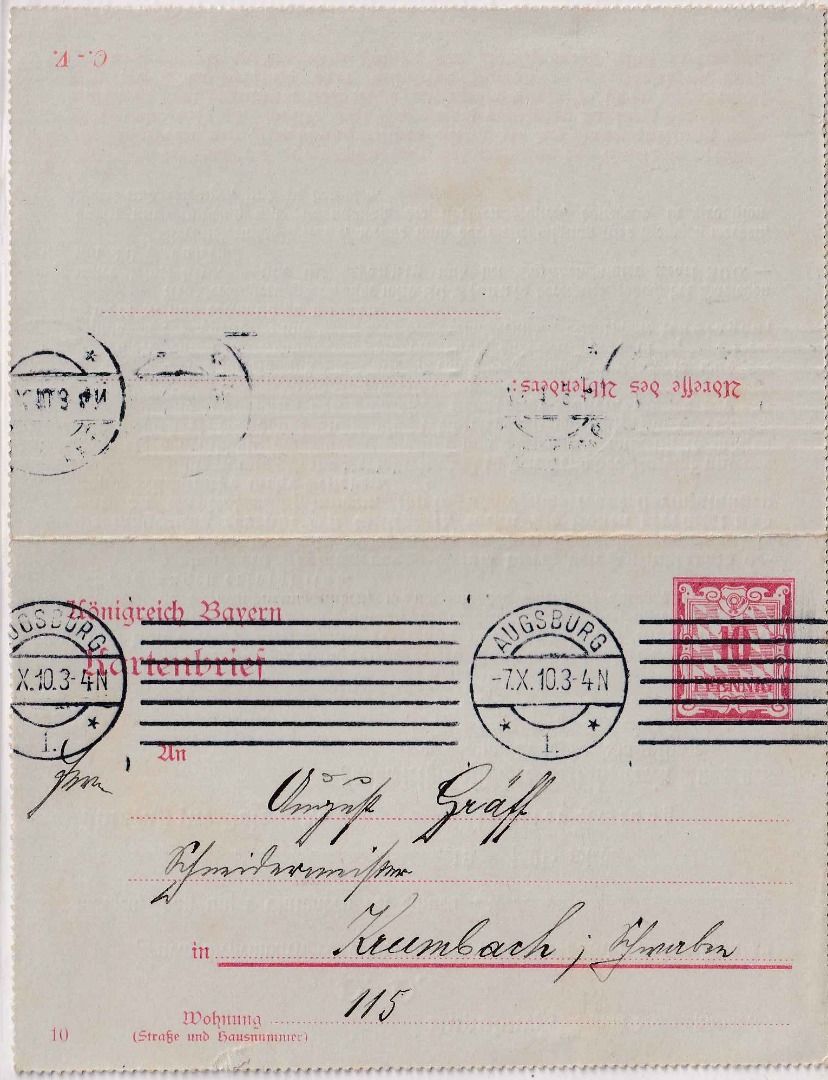 C.-V.
Adresse des Absenders:
Königreich Bayern
Kartenbrief
10
PFENNIG
AUGSBURG
X.10.3-4N
1.
AUGSBURG
-7.X.10.3-4N
1.
An
Herrn
August Gräff
Schneidermeister
in Krumbach, Schwaben
115
Wohnung
(Straße und Hausnummer)
10